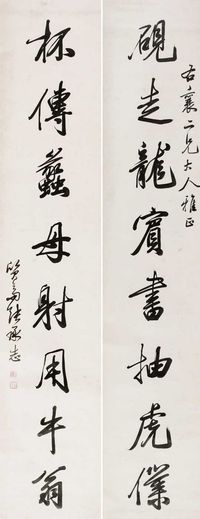 右襄二兄大人雅正
硯走龍賓書抽虎僕
杯傳蠡母射用牛翁
承志